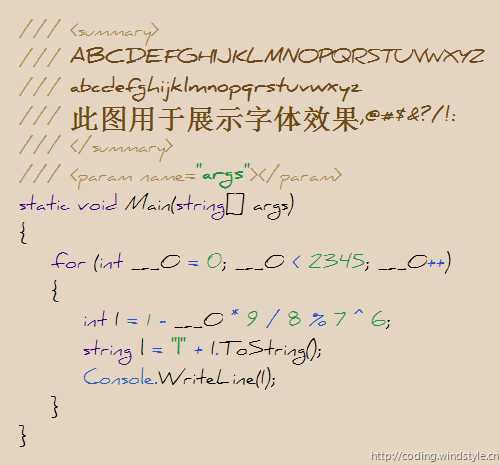 /// <summary>
/// ABCDEFGHIJKLMNOPQRSTUVWXYZ
/// abcdefghijklmnopqrstuvwxyz
/// 此图用于展示字体效果,@#$&?/!:
/// </summary>
/// <param name="args"></param>
static void Main(string[] args)
{
for (int ___O = 0; ___O < 2345; ___O++)
{
int l = 1 - ___O * 9 / 8 % 7 ^ 6;
string I = "|" + l.ToString();
Console.WriteLine(I);
}
}
http://coding.windstyle.cn